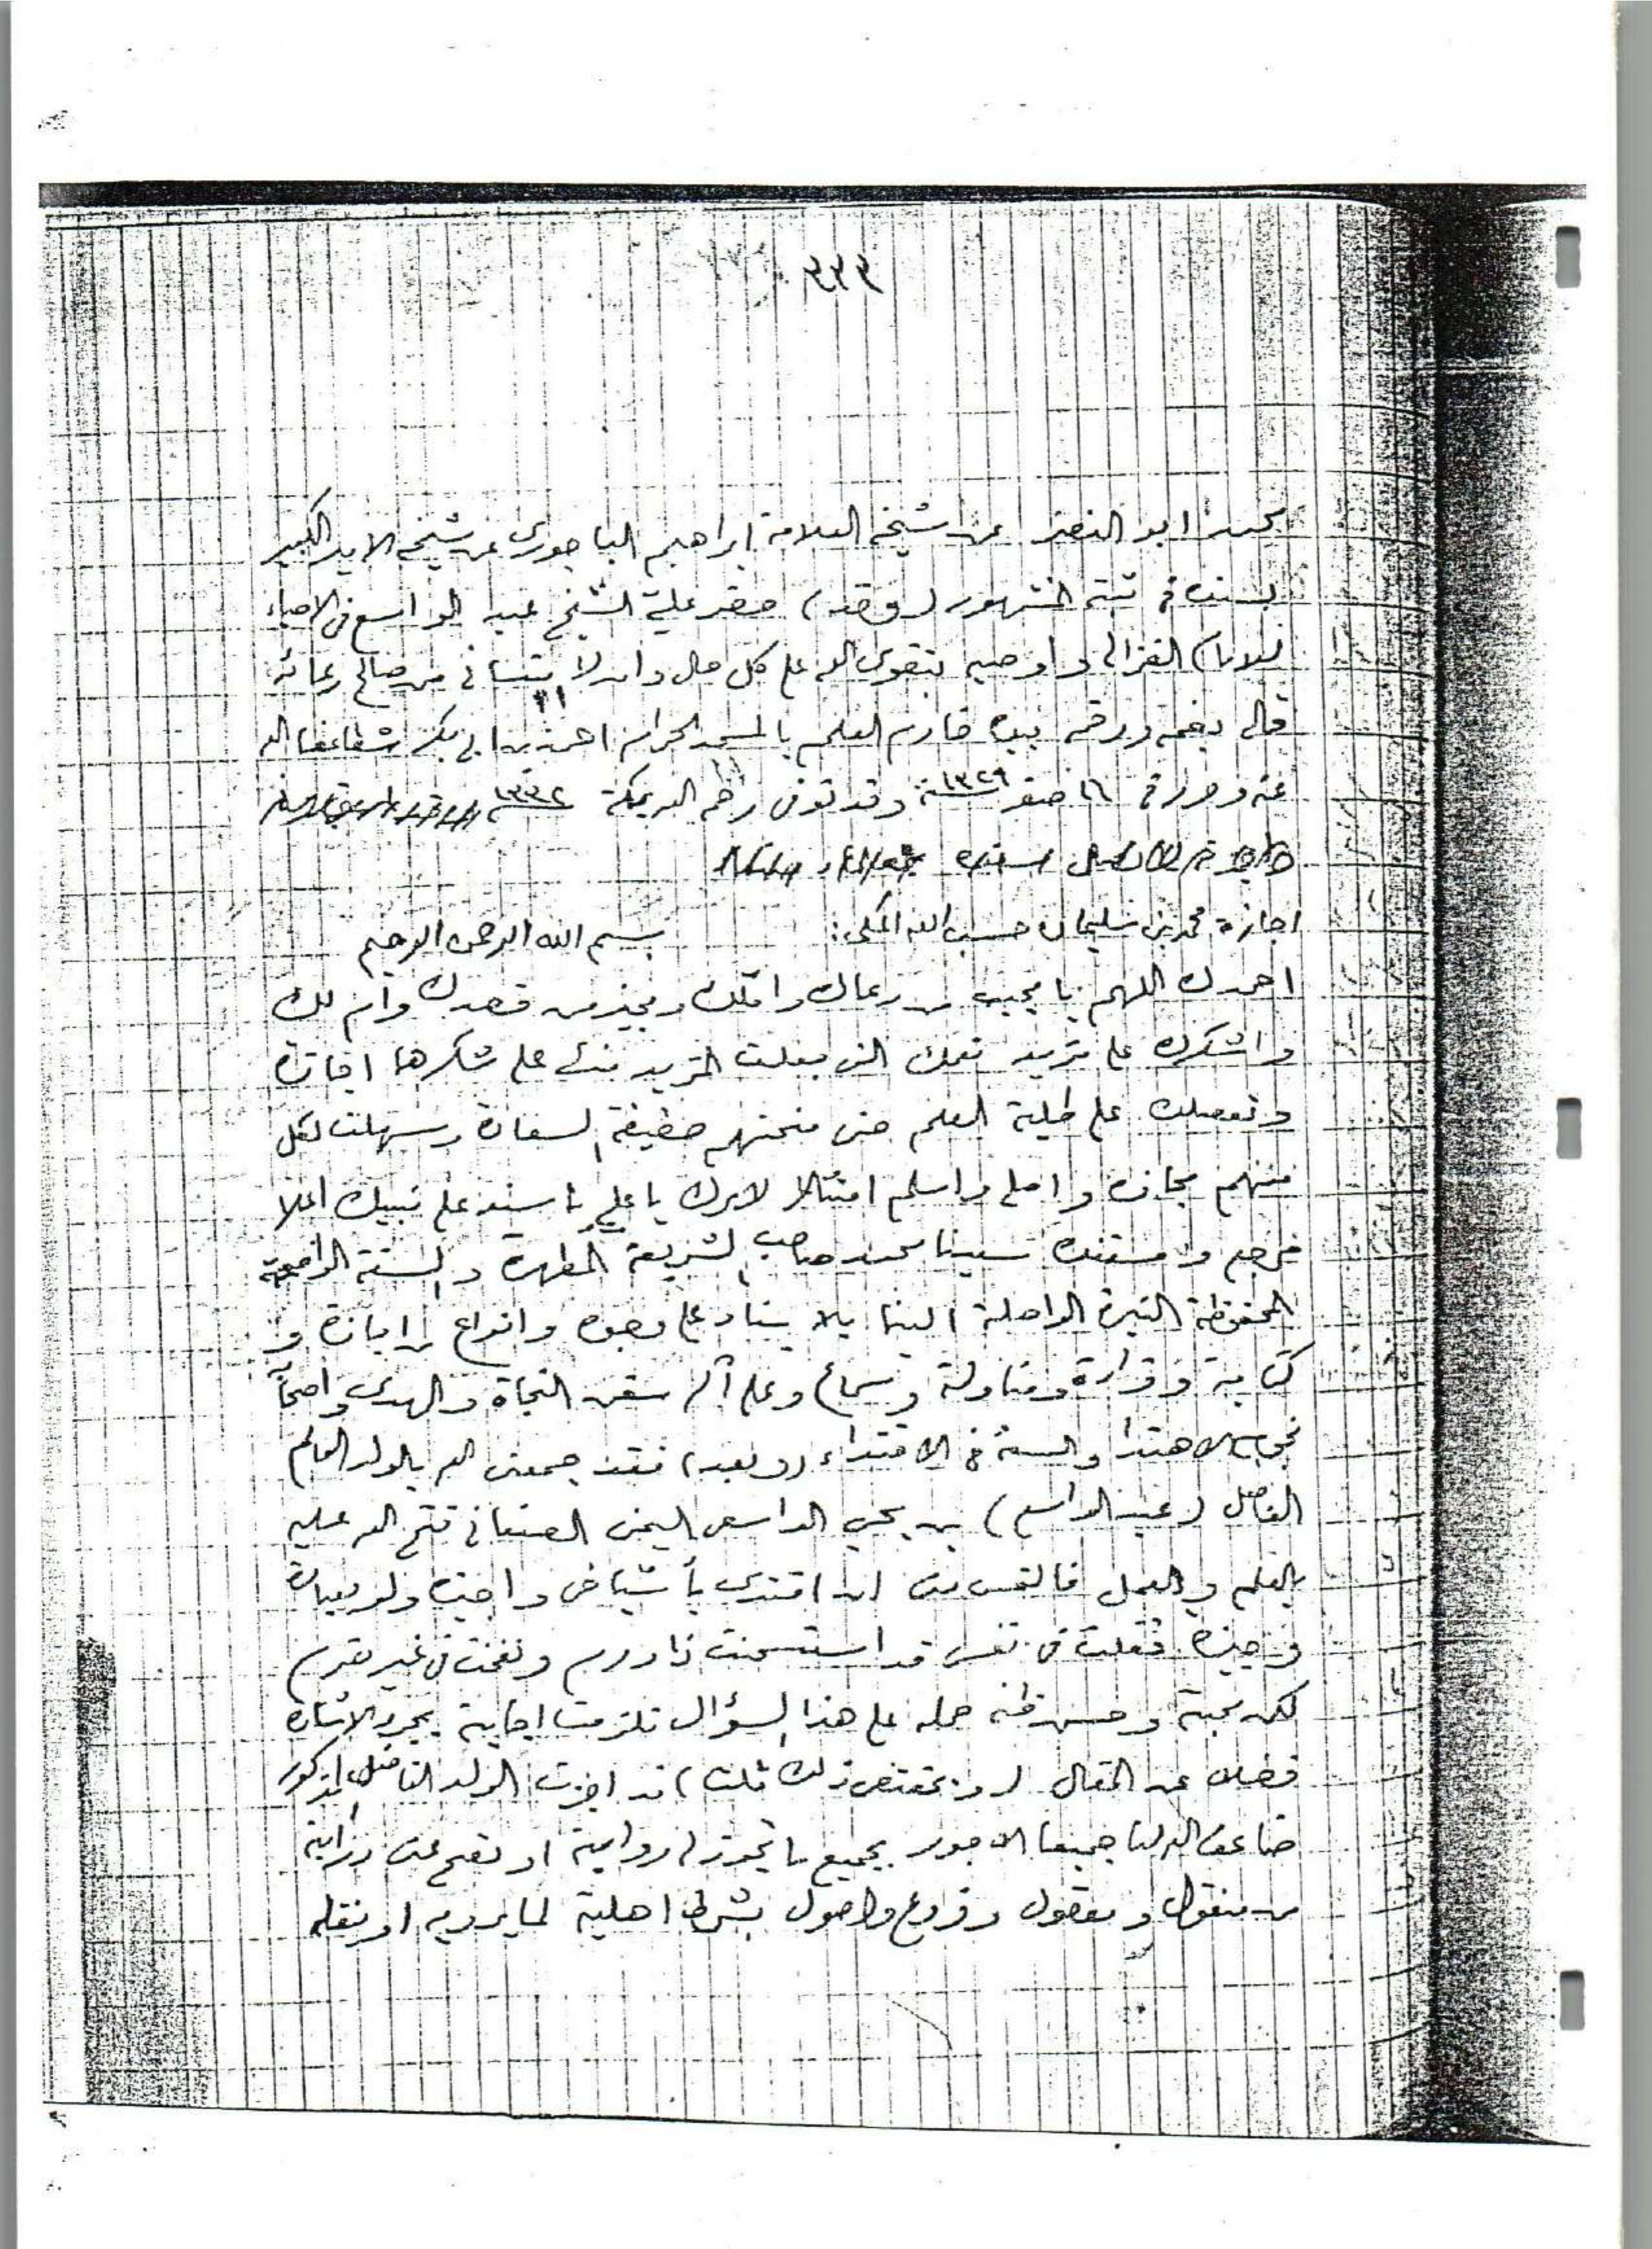 ٣٣٣
محمد ابو النصر عن شيخه العلامة ابراهيم الباجوري عن شيخه الامير الكبير
بسنده في ثبته المشهور (وقد) حضر علي الشيخ عبد الواسع في الاحياء
للامام الغزالي واوصيه بتقوى الله على كل حال وان لا ينساني من صالح دعائه
قاله بفمه ورقمه بيده خادم العلم بالمسجد الحرام احمد بن ابي بكر شطا عفا الله
عنه وحرر في ١٦ صفر سنة ١٣٢٩ وقد توفى رحمه الله بمكة سنة ١٣٣٢
اجازة محمد بن سليمان حسب الله المكي: بسم الله الرحمن الرحيم
احمدك اللهم يا مجيب من دعاك وامّلك ومجيز من قصدك وام لك
واشكرك على مزيد نعمك التي جعلت المزيد منك على شكرها اجازة
وتفضلك على طلبة العلم حتى منحتهم حقيقة السعادة وسهلت لكل
منهم مجازه واصلي واسلم امتثالا لامرك يا علي يا سند على نبيك اعلا
مرجع ومستند سيدنا محمد صاحب الشريعة المطهرة والسنة الواضحة
المحفوظة النيرة الواصلة الينا بالاسناد على وجوه وانواع من اجازة و
كتابة وقراءة ومناولة وسماع وعلى آله سفن النجاة والهدى واصحابه
نجوم الاهتدا والسنة في الاقتداء (وبعد) فقد جمعني الله بالولد العالم
الفاضل (عبد الواسع) بن يحيى الواسعي اليمني الصنعاني فتح الله عليه
بالعلم والعمل فالتمس مني ان اقتدي بأشياخي واجيزه ولو بعبارة
وجيزة فقلت في نفسي قد استسمنت ذا ورم ونفخت في غير ضرم
لكن محبته وحسن ظنه حمله على هذا السؤال فلزمت اجابته بمجرد الاشارة
فضلا عن المقال (وبمقتضى ذلك قلت) قد اجزت الولد الفاضل المذكور
ضاعف الله لنا جميعا الاجور بجميع ما تجوز لي روايته او تصح عني درايته
من منقول ومعقول وفروع واصول بشرط اهلية لما يرويه او ينقله